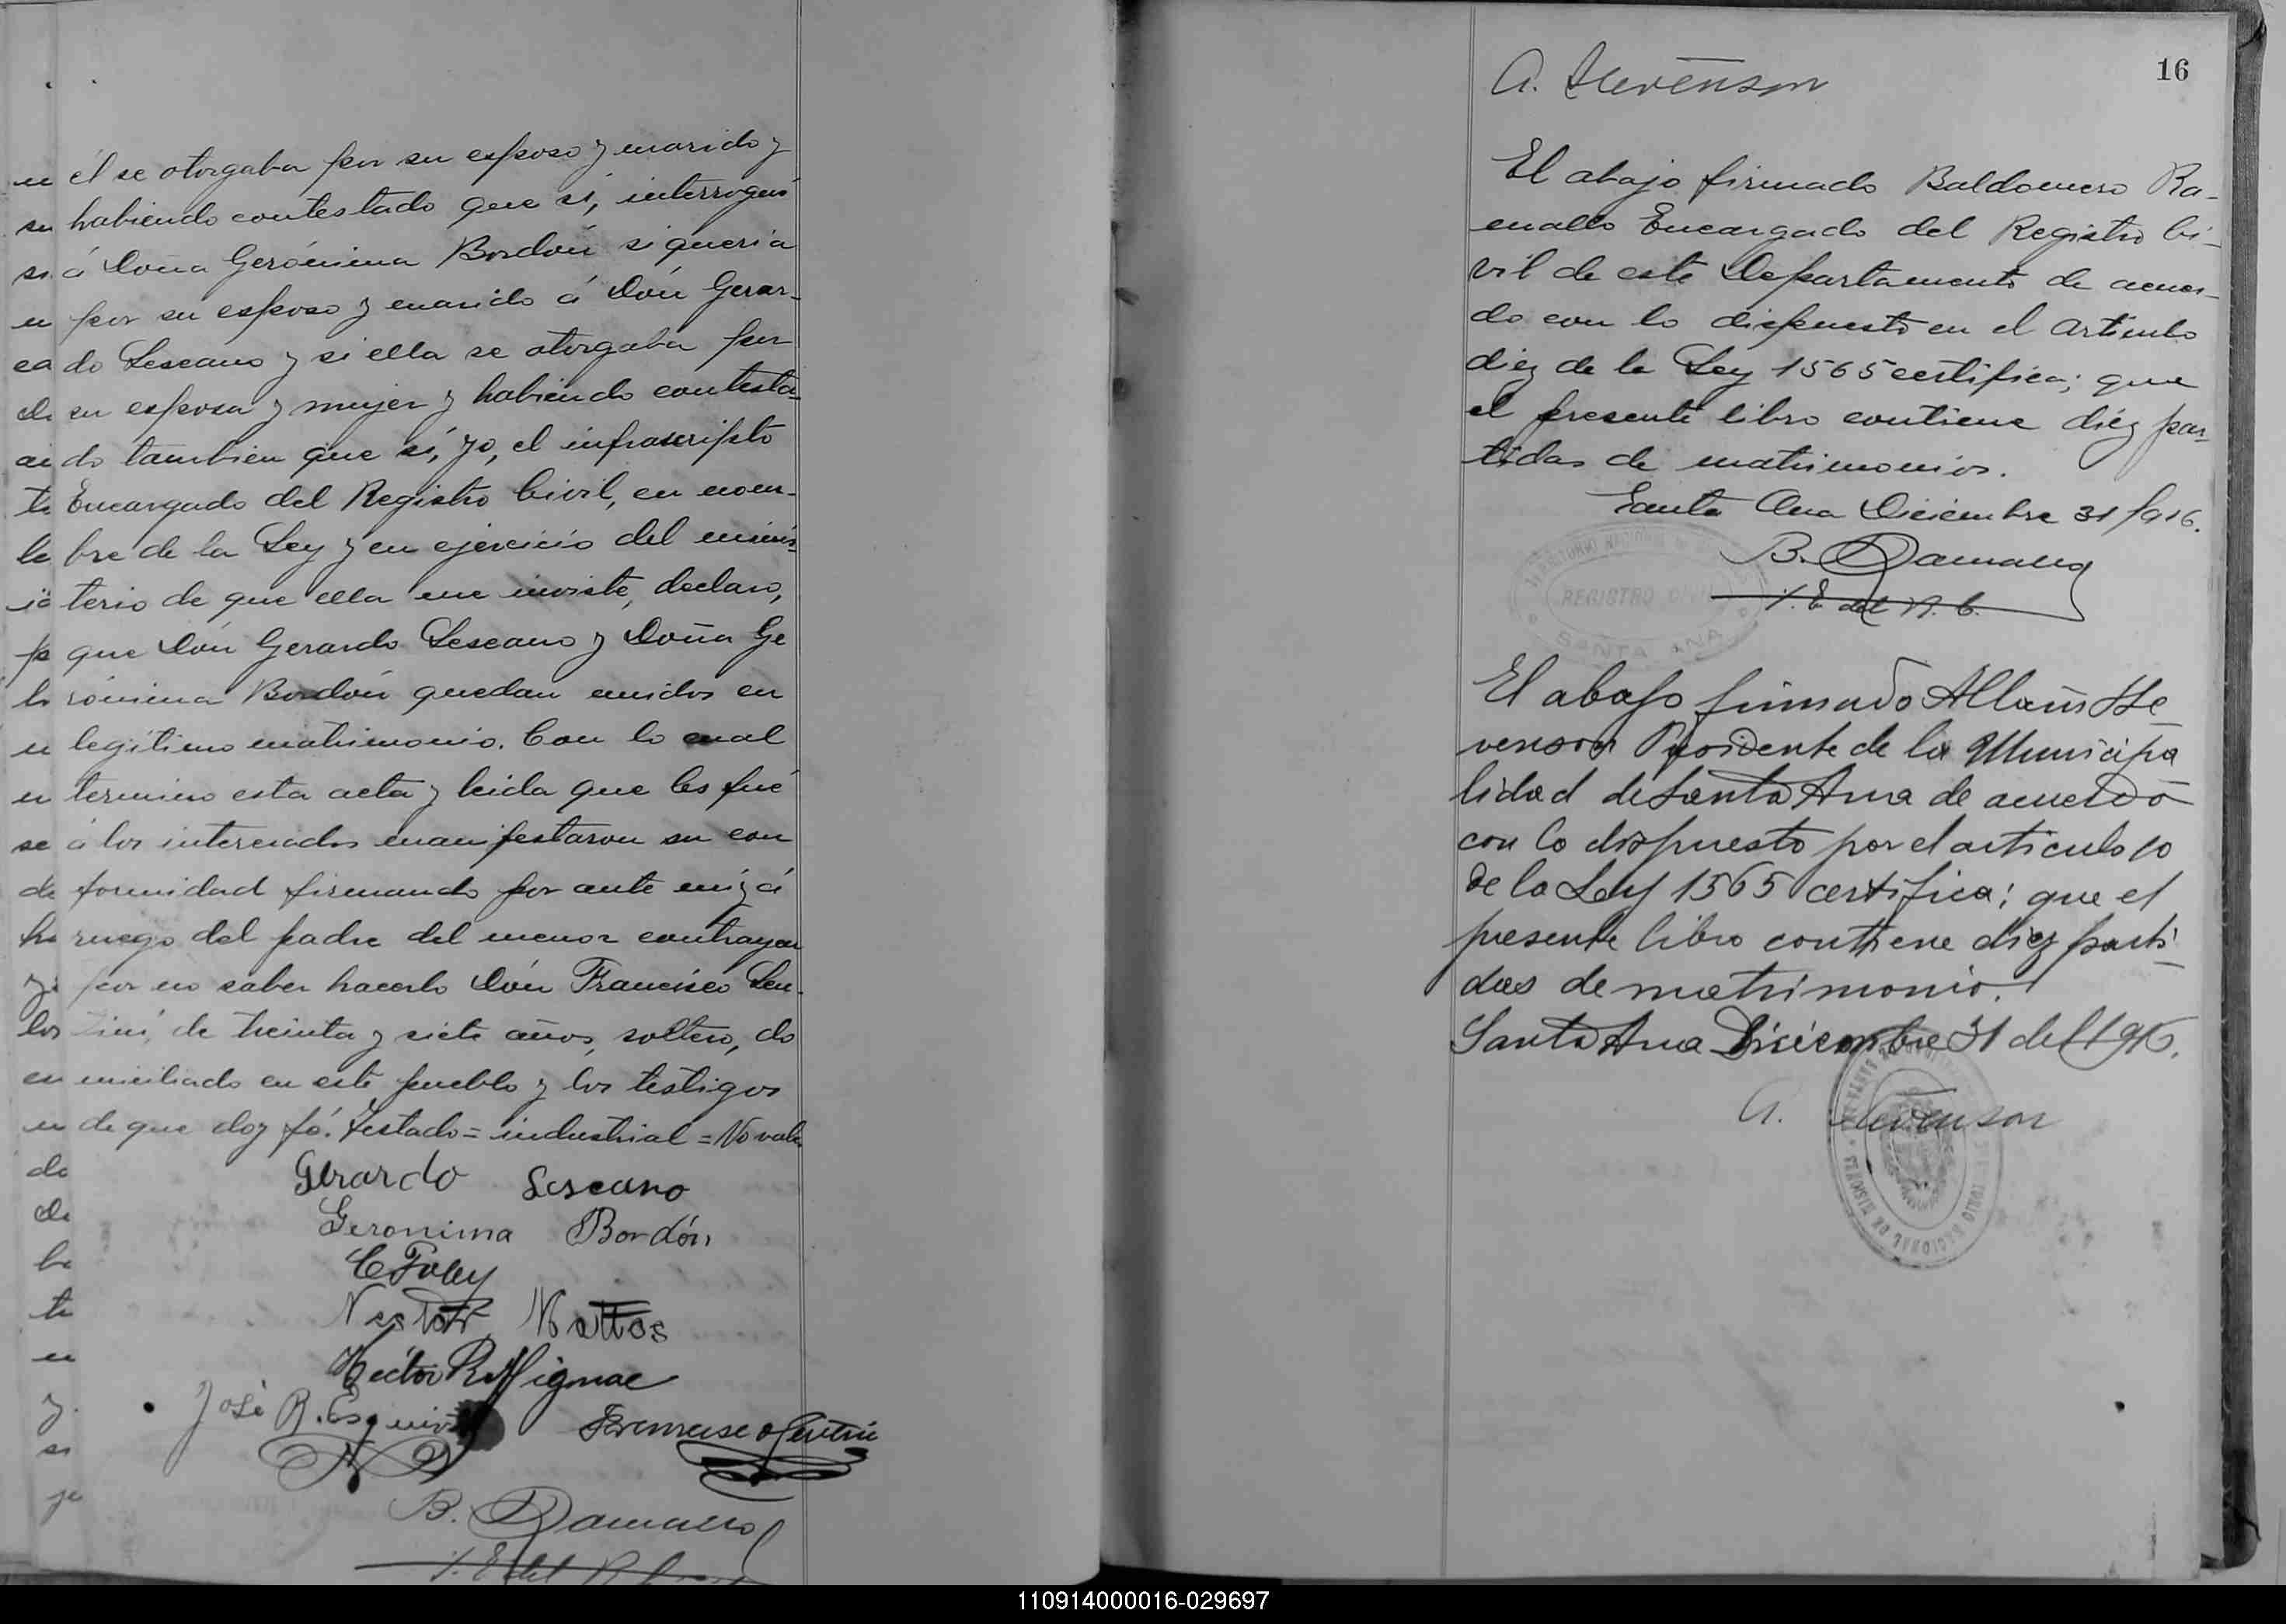 él se otorgaba por su esposo y marido y
habiendo contestado que sí, interrogué
á Doña Gerónima Bordón si queria
por su esposo y marido á Dón Gerar-
do Lescano y si ella se otorgaba por
su esposa y mujer y habiendo contesta-
do tambien que sí, yo, el infrascripto
Encargado del Registro Civil, en nom-
bre de la Ley y en ejercicio del minis-
terio de que ella me inviste, declaro,
que Dón Gerardo Lescano y Doña Ge
rónima Bordón quedan unidos en
legítimo matrimonio. Con lo cual
termino esta acta y leida que les fué
á los interesados manifestaron su con
formidad firmando por ante mi y á
ruego del padre del menor contrayen
por no saber hacerlo Dón Francisco Len-
tini, de treinta y siete años, soltero, do
miciliado en este pueblo y los testigos
de que doy fé. Testado = industrial = No vale
Gerardo Lescano
Geronima Bordón
C Foley
Nestor Mattos
Hector R Mignac
José R. Esquivel
B. Ramallo
A. Stevenson
16
El abajo firmado Baldomero Ra-
mallo Encargado del Registro Ci-
vil de este Departamento de acuer-
do con lo dispuesto en el Artículo
diez de la Ley 1565 certifica; que
el presente libro contiene diéz par-
tidas de matrimonios.
Santa Ana Diciembre 31/916.
B. Ramallo
E. del R. C.
REGISTRO CIVIL
SANTA ANA
El abajo firmado Allan Ste
venson Presidente de la Municipa
lidad de Santa Ana de acuerdo
con lo dispuesto por el articulo 10
de la Ley 1565 certifica; que el
presente libro contiene diez parti
das de matrimonio.
Santa Ana Diciembre 31 del 1916.
A. Stevenson
110914000016-029697